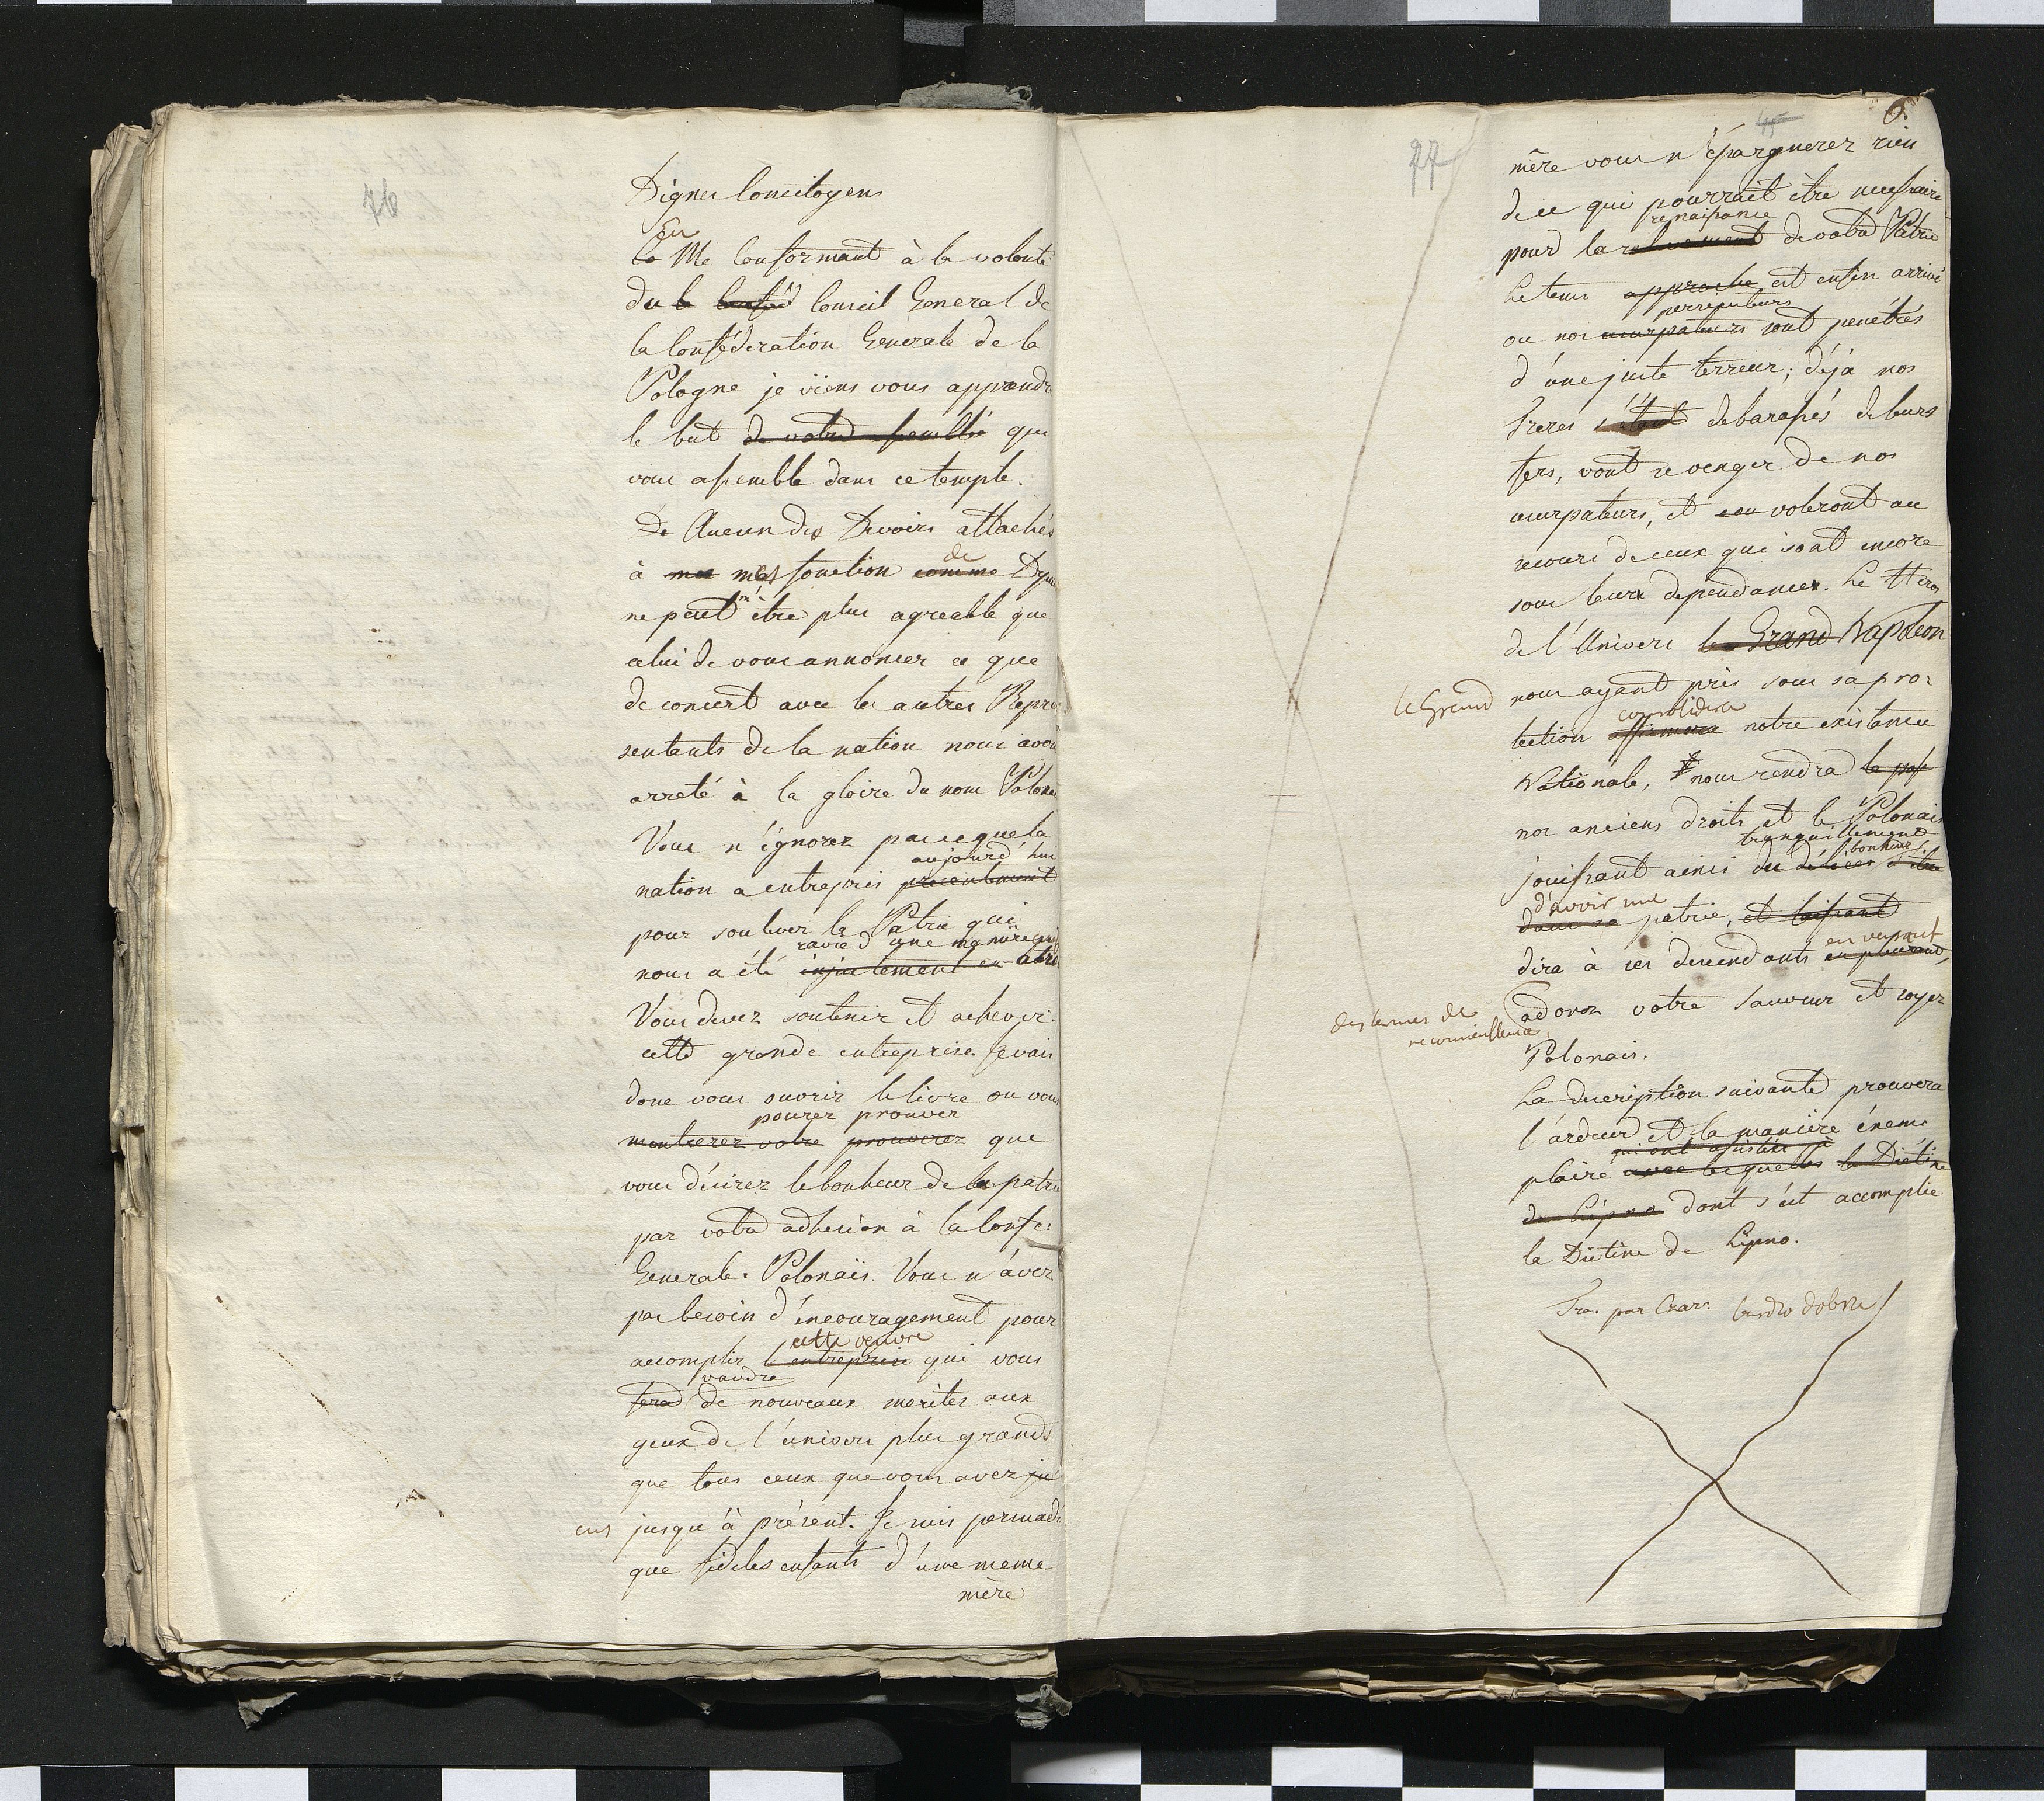 76
Dignes Concitoyens
En
Me Conformant à la volonté
du Conseil General de
la Confédération Generale de la
Pologne je viens vous apprendre
le but de votre que
vous assemble dans ce temple.
De Aucun des Devoirs attachés
de
à mes fonction comme
m'
ne peut être plus agreable que
celui de vous annoncer ce que
de concert avec les autres Repre
sentants de la nation nous avon
arreté à la gloire du nom Polona
Vous n'ignorez pas ce que la
aujourd'hui
nation a entrepris presentement
pour soulever la Patrie qui
ravie d'une manière
nous a été injustement
Vous devez soutenir et achever
cette grande entreprise Je vais
donc vous ouvrir le livre ou vous
pourez prouver
montrerez votre prouverez que
vous désirez le bonheur de la patrie
par votre adhesion à la Confe:
Generale. Polonais. Vous n'avez
pas besoin d'encouragement pour
cette œuvre
accomplir l'entreprise qui vous
vaudra
fera de nouveaux merites aux
yeux de l'univers plus grands
que tous ceux que vous avez
eus jusqu'à présent. Je suis persuadé
que fideles enfants d'une meme
mère
77
45
6.
mêre vous n'épargnerez rien
de ce qui pourrait être necessaire
renaissance
pour la de votre Patrie
Le tems approche est enfin arrivé
persecuteurs
ou nos usurpateurs sont penétrés
d'une juste terreur; déjà nos
Freres s'étant debarassés de leurs
fers, vont se venger de nos
usurpateurs, et voleront au
secours de ceux qui sont encore
sous leurs dependances. Le Heros
de l'Univers le Grand Napoleon
le Grand nous ayant pris sous sa pro:
consolidera
tection affirmera notre existance
Nationale, nous rendra le
nos anciens droits et le Polonais
tranquillement
bonheur
jouissant ainsi du délices
d'avoir une
dans sa patrie, et laissant
en versant
dira à ses descendants en pleurant,
des larmes de
reconnaissance
adorez votre Sauveur et soyez
Polonais.
La description suivante prouvera
l'ardeur et la manière éxem
qui ont assistés à
plaire avec lesquelles la Diétine
de Lipno dont s'est accomplie
la Diétine de Lipno.
Tra. par Czar. bardzo dobrze!